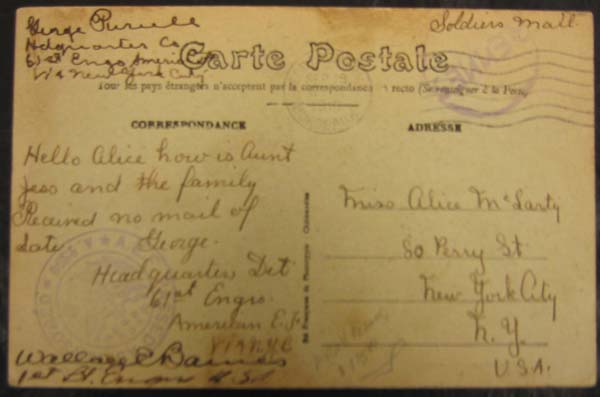 George Purcell
Hdquarters Co
61st Engrs American E.F.
Via New York City
Soldiers Mail.
Carte Postale
Tous les pays étrangers n'acceptent pas la correspondance au recto (Se renseigner à la Poste)
CORRESPONDANCE
ADRESSE
Hello Alice how is Aunt
Jess and the family
Received no mail of
late. George.
Headquarters Det
61st Engrs.
American E.F.
VIA N.Y.C
Miss Alice McLarty
80 Perry St
New York City
N.Y.
U.S.A.
Wallace Barnes
1st Lt. Engrs U.S.A
Sté Française de Phototypie